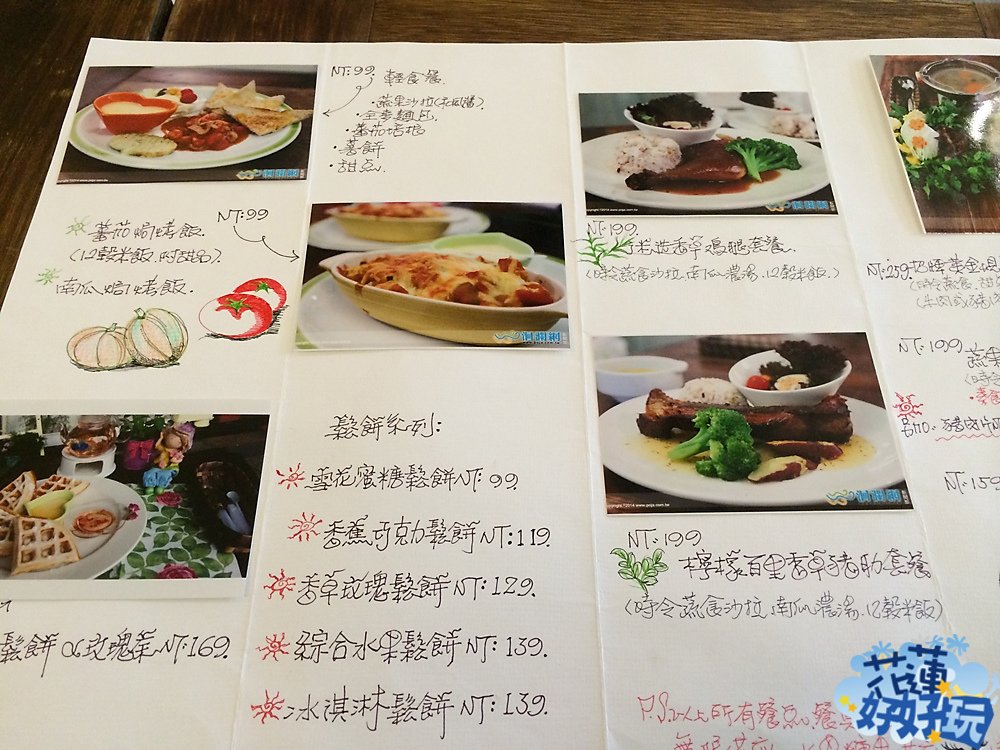 NT:99. 輕食餐.
・蔬果沙拉(和風醬).
・全麥麵包.
・蕃茄培根
・薯餅
・甜点.
NT:99
蕃茄焗烤飯.
(12穀米飯.附甜品).
南瓜焗烤飯.
鬆餅系列:
雪花蜜糖鬆餅NT:99.
香蕉巧克力鬆餅NT:119.
香草玫瑰鬆餅NT:129.
綜合水果鬆餅NT:139.
冰淇淋鬆餅NT:139.
鬆餅 玫瑰茶NT:169.
NT:199.
香草鷄腿套餐.
(時令蔬食沙拉.南瓜濃湯.12穀米飯.)
NT:199
檸檬百里香草豬肋套餐
(時令蔬食沙拉.南瓜濃湯.12穀米飯)
P.S以上所有餐点.餐
NT:259
(時令蔬食.甜
NT:199
蔬果
NT:159
花蓮
好好玩